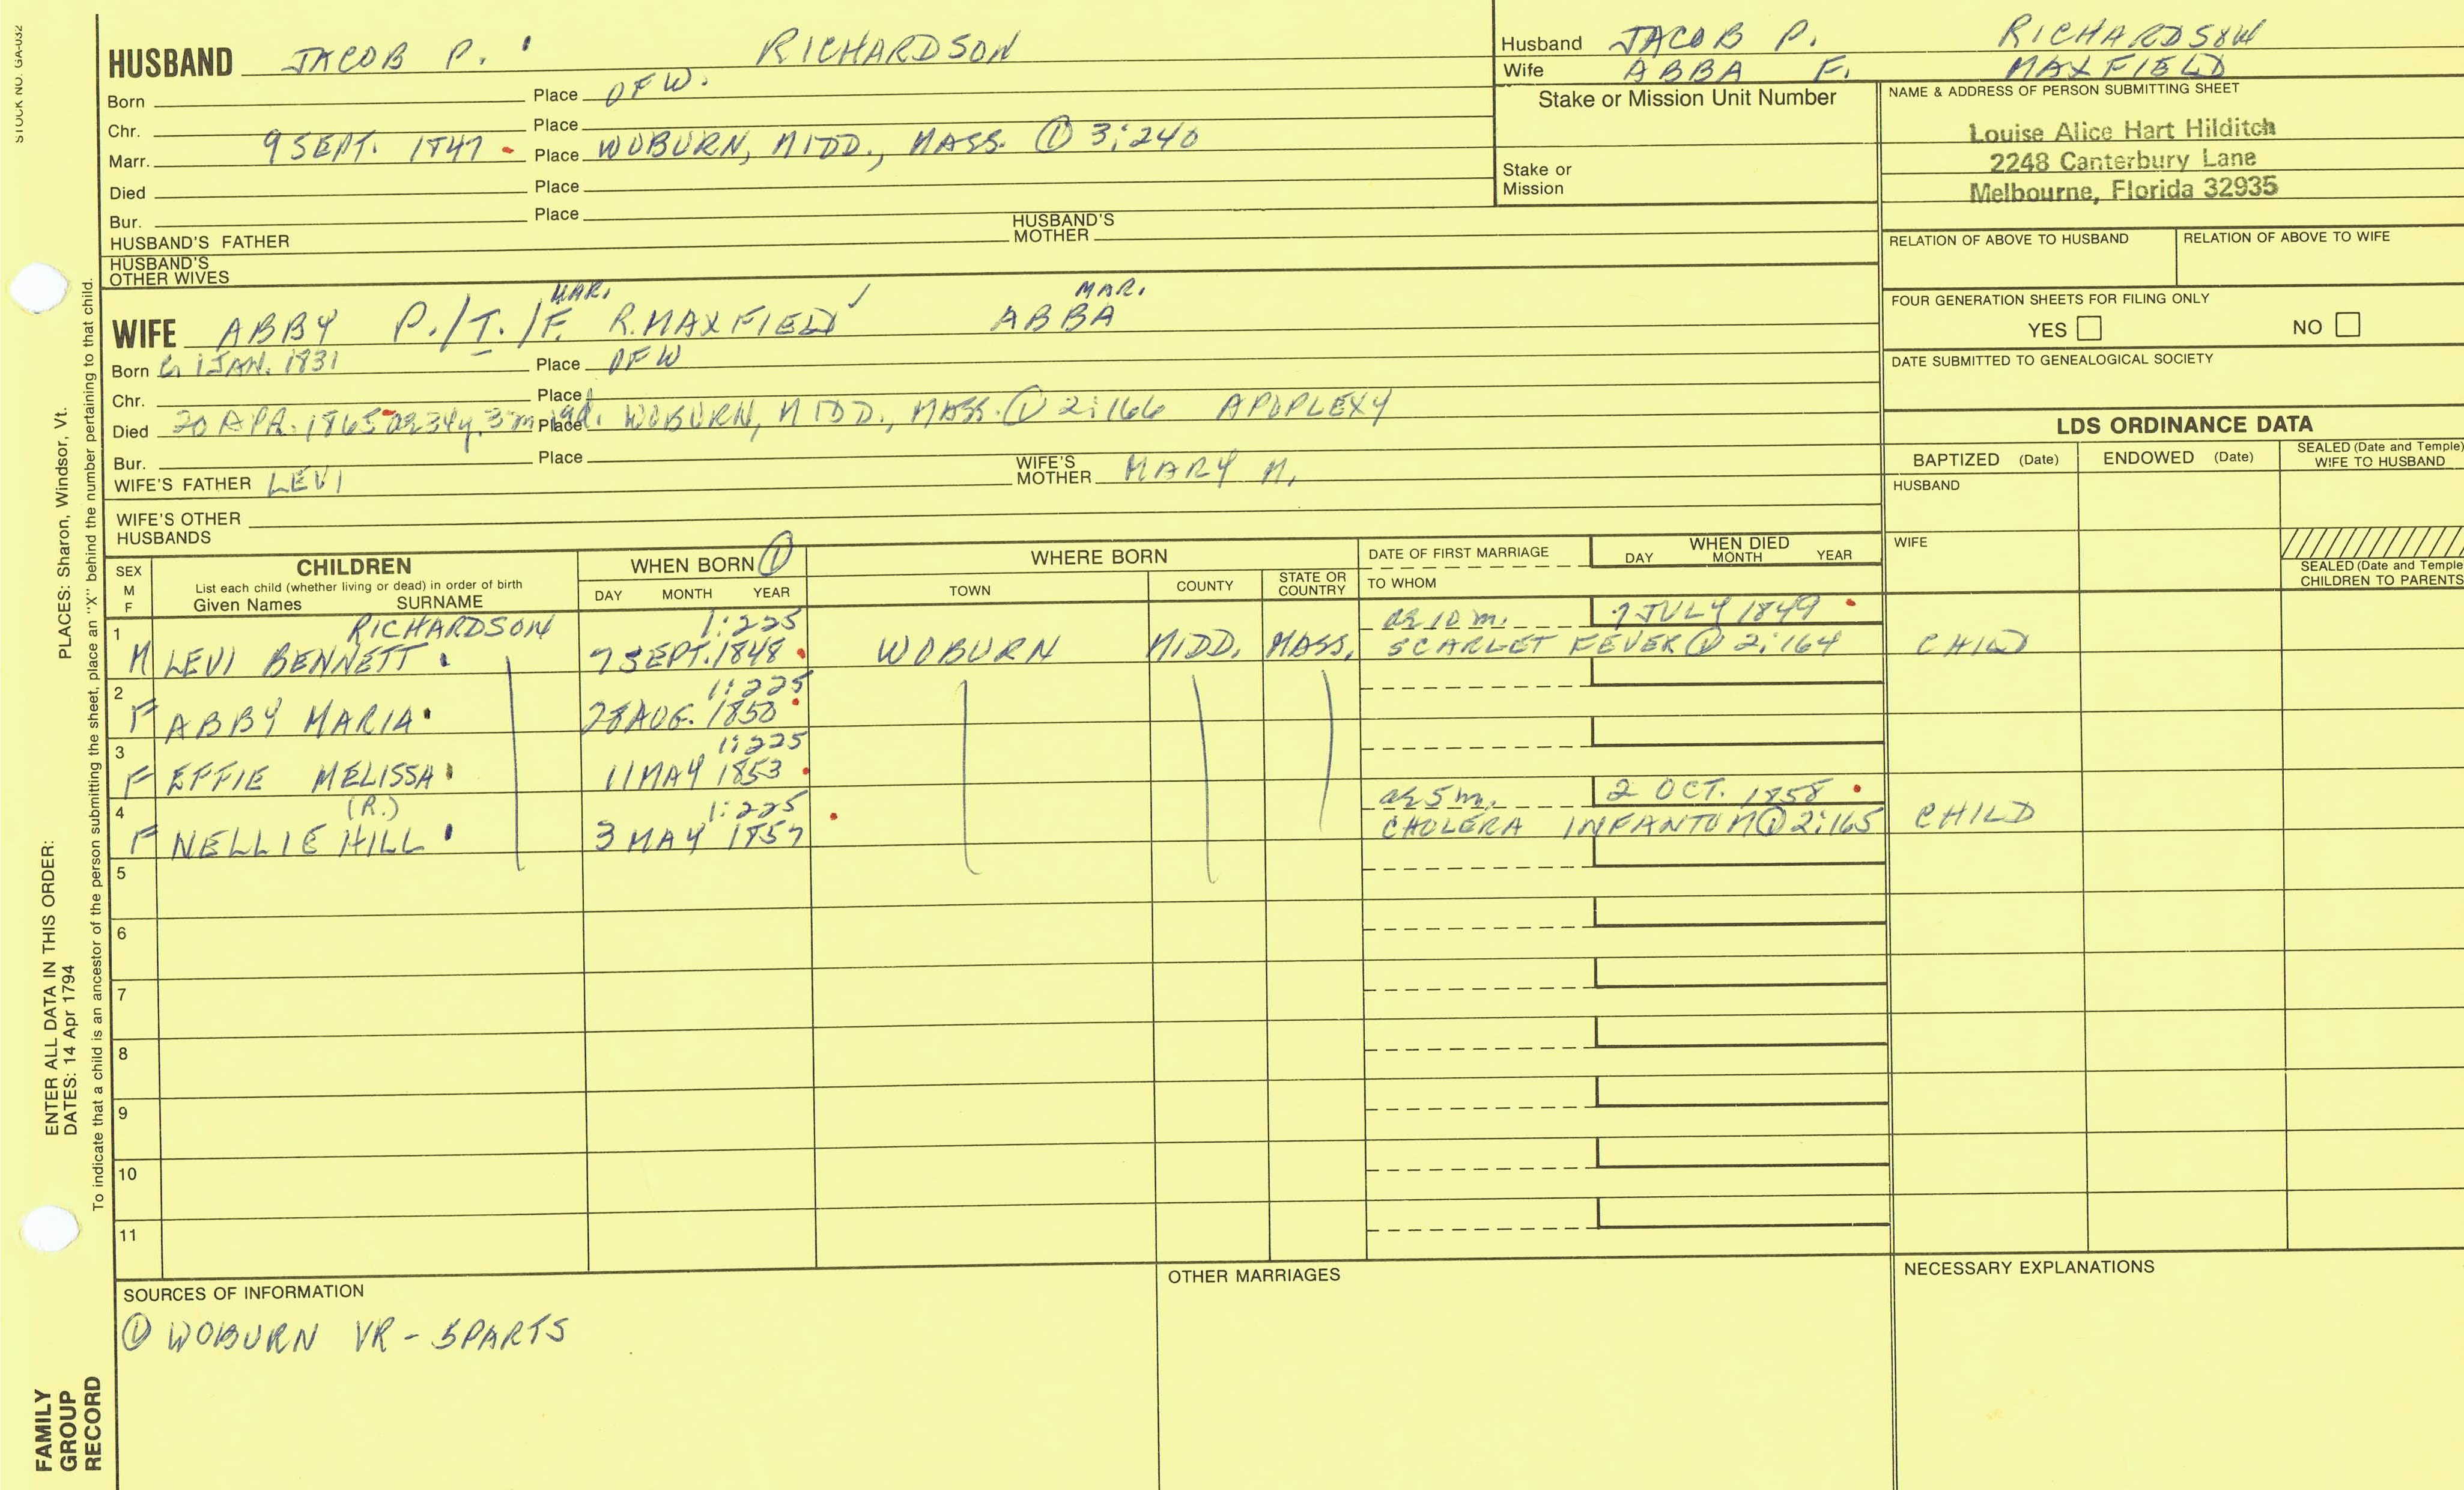 STOCK NO. GA-032
HUSBAND JACOB P. RICHARDSON
Born Place OF W.
Chr. Place
Marr. 9 SEPT. 1847 Place WOBURN, MIDD., MASS. ① 3:240
Died Place
Bur. Place
HUSBAND'S FATHER HUSBAND'S MOTHER
HUSBAND'S OTHER WIVES
MAR. MAR.
WIFE ABBY P./T./F. R. MAXFIELD ✓ ABBA
Born C. 1 JAN. 1831 Place OF W
Chr. Place
Died 20 APR. 1865 ae 34y. 3m 19d. Place WOBURN, MIDD., MASS. ① 2:166 APOPLEXY
Bur. Place
WIFE'S FATHER LEVI WIFE'S MOTHER MARY M.
WIFE'S OTHER HUSBANDS
Husband JACOB P. RICHARDSON
Wife ABBA F. MAXFIELD
Stake or Mission Unit Number
Stake or Mission
NAME & ADDRESS OF PERSON SUBMITTING SHEET
Louise Alice Hart Hilditch
2248 Canterbury Lane
Melbourne, Florida 32935
RELATION OF ABOVE TO HUSBAND RELATION OF ABOVE TO WIFE
FOUR GENERATION SHEETS FOR FILING ONLY
YES NO
DATE SUBMITTED TO GENEALOGICAL SOCIETY
LDS ORDINANCE DATA
BAPTIZED (Date) ENDOWED (Date) SEALED (Date and Temple) WIFE TO HUSBAND
HUSBAND
WIFE
SEALED (Date and Temple
CHILDREN TO PARENTS
SEX M F CHILDREN WHEN BORN ① WHERE BORN DATE OF FIRST MARRIAGE WHEN DIED
List each child (whether living or dead) in order of birth
Given Names SURNAME DAY MONTH YEAR TOWN COUNTY STATE OR COUNTRY TO WHOM DAY MONTH YEAR
1 RICHARDSON 1:225 ae 10 m. 7 JULY 1849
M LEVI BENNETT 7 SEPT. 1848 WOBURN MIDD. MASS. SCARLET FEVER ① 2:164 CHILD
2 1:225
F ABBY MARIA 28 AUG. 1850
3 1:225
F EFFIE MELISSA 11 MAY 1853
4 (R.) 1:225 ae 5 m. 2 OCT. 1858
F NELLIE HILL 3 MAY 1857 CHOLERA INFANTUM ① 2:165 CHILD
5
6
7
8
9
10
11
SOURCES OF INFORMATION
① WOBURN VR - 5 PARTS
OTHER MARRIAGES
NECESSARY EXPLANATIONS
PLACES: Sharon, Windsor, Vt.
ENTER ALL DATA IN THIS ORDER:
DATES: 14 Apr 1794
To indicate that a child is an ancestor of the person submitting the sheet, place an "X" behind the number pertaining to that child.
FAMILY
GROUP
RECORD